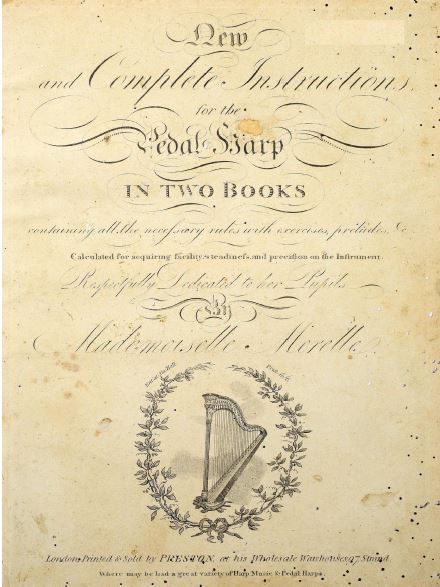 New
and Complete Instructions
for the
Pedal Harp
IN TWO BOOKS
containing all the necessary rules with exercises, preludes, &c.
Calculated for acquiring facility, steadiness, and precision on the Instrument.
Respectfully Dedicated to her Pupils
By
Mademoiselle Merelle
Ent. at Sta. Hall. Price
London, Printed & Sold by PRESTON, at his Wholesale Warehouses, 97, Strand.
Where may be had a great variety of Harp Music & Pedal Harps.